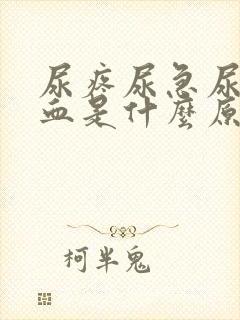 尿疼尿急尿
血是什麼原
柯半鬼